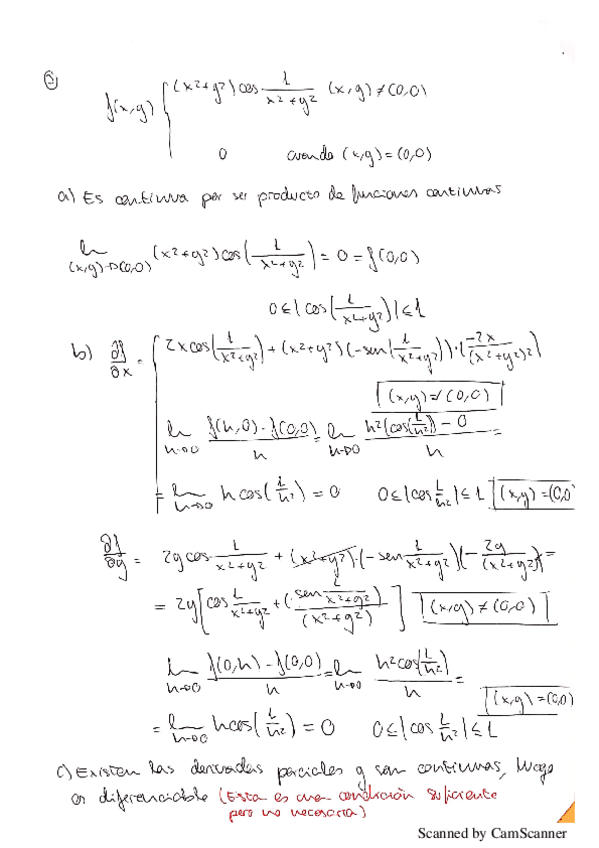 ②
f(x,y) { (x²+y²) cos 1/(x²+y²) (x,y) ≠ (0,0)
0 cuando (x,y) = (0,0)
a) Es continua por ser producto de funciones continuas
lim (x,y)→(0,0) (x²+y²) cos(1/(x²+y²)) = 0 = f(0,0)
0 ≤ | cos(1/(x²+y²)) | ≤ 1
b) ∂f/∂x = { 2x cos(1/(x²+y²)) + (x²+y²) (-sen(1/(x²+y²))) · (-2x/(x²+y²)²)
(x,y) ≠ (0,0)
lim h→0 (f(h,0) - f(0,0))/h = lim h→0 (h²(cos(1/h²)) - 0)/h =
= lim h→0 h cos(1/h²) = 0 0 ≤ |cos 1/h²| ≤ 1 (x,y) = (0,0)
∂f/∂y = 2y cos 1/(x²+y²) + (x²+y²) · (-sen 1/(x²+y²)) (- 2y/(x²+y²)²) =
= 2y [cos 1/(x²+y²) + (sen 1/(x²+y²))/(x²+y²)] (x,y) ≠ (0,0)
lim h→0 (f(0,h) - f(0,0))/h = lim h→0 (h² cos(1/h²))/h =
(x,y) = (0,0)
= lim h→0 h cos(1/h²) = 0 0 ≤ |cos 1/h²| ≤ 1
c) Existen las derivadas parciales y son continuas, luego
es diferenciable (Esta es una condición suficiente
pero no necesaria)
Scanned by CamScanner